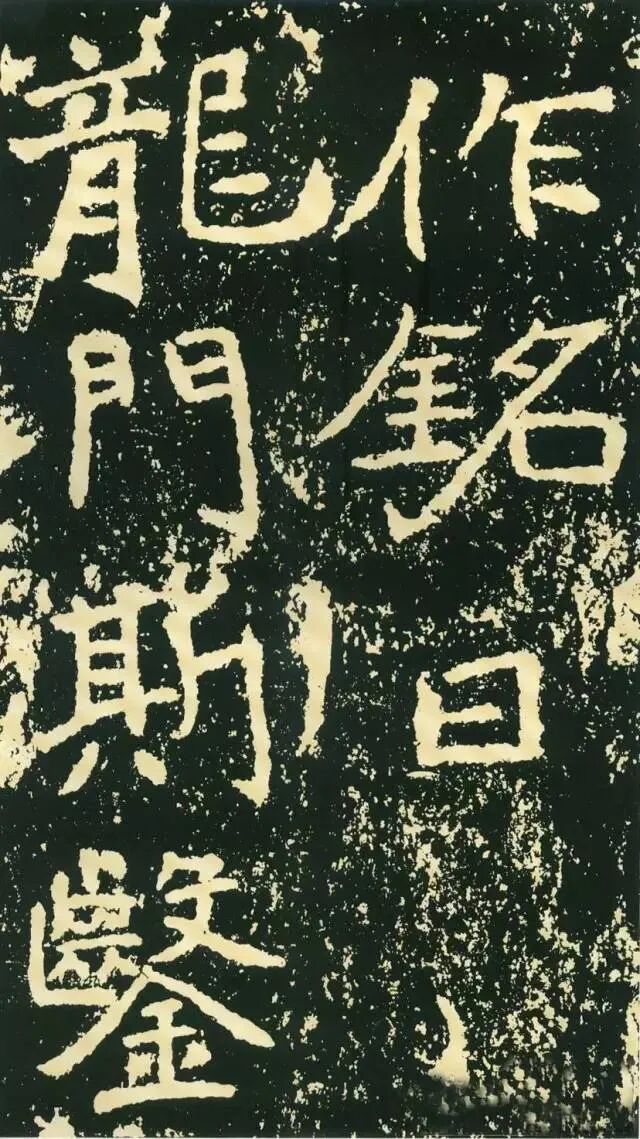 作銘曰
龍門斯鑿